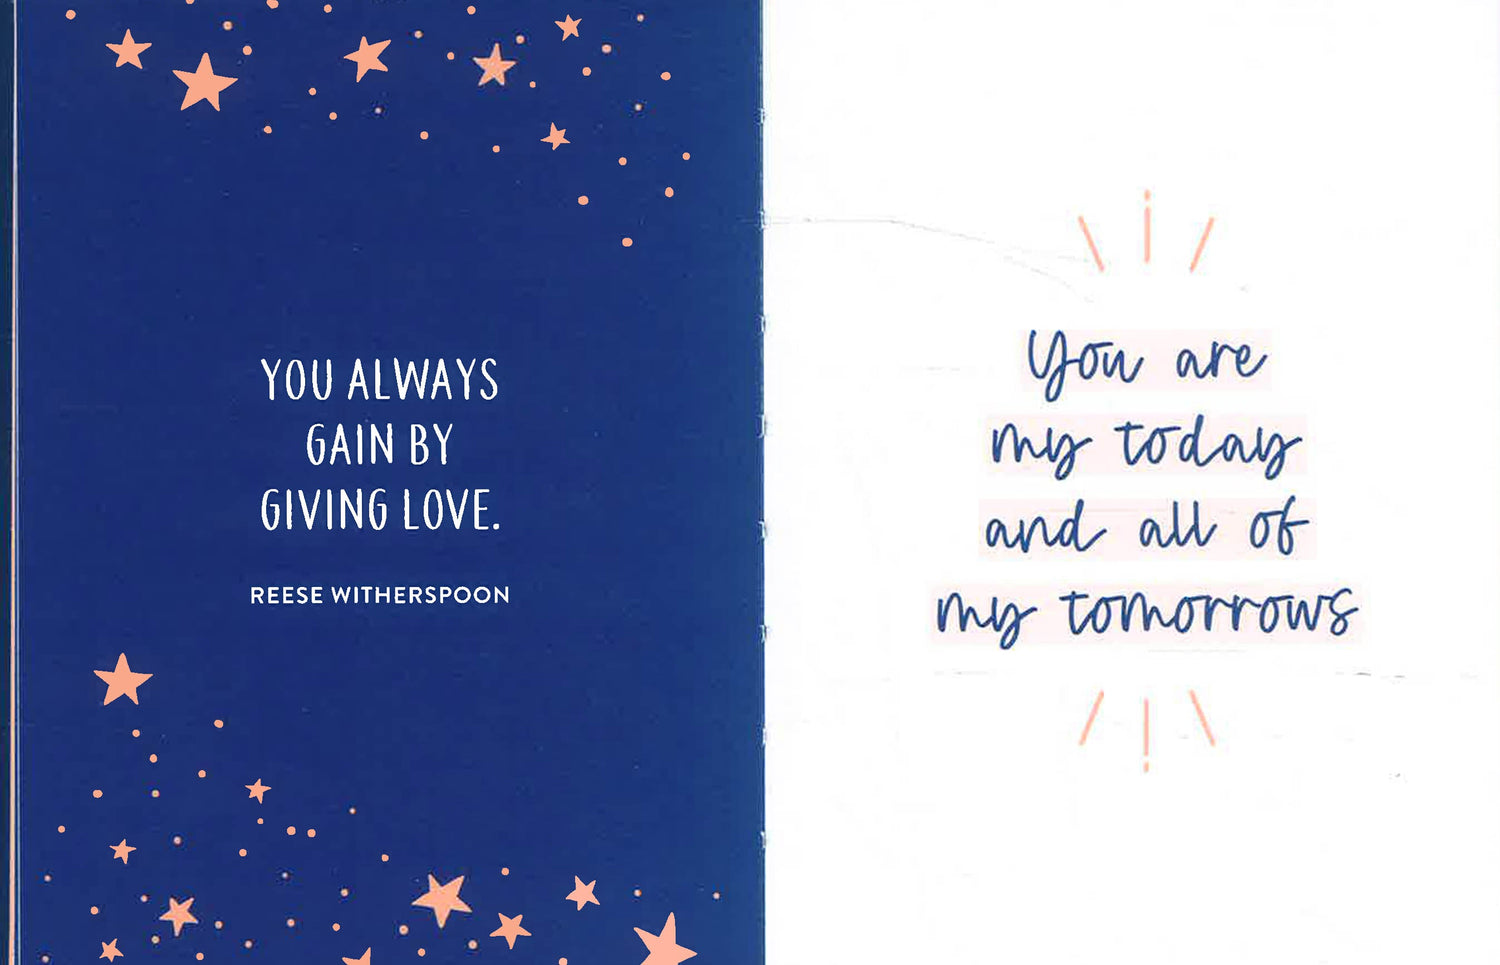 YOU ALWAYS
GAIN BY
GIVING LOVE.
REESE WITHERSPOON
You are
my today
and all of
my tomorrows